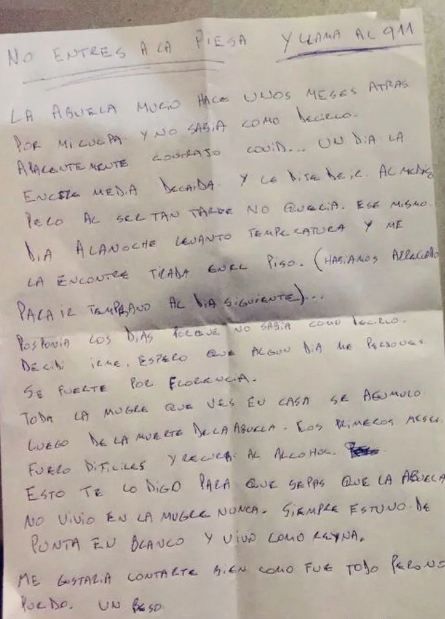 NO ENTRES A LA PIESA Y LLAMA AL 911
LA ABUELA MURIO HACE UNOS MESES ATRAS
POR MI CULPA Y NO SABIA COMO DECIRLO.
APARENTEMENTE CONTRAJO COVID... UN DIA LA
ENCONTRE MEDIA DECAIDA. Y LE DIJE DE IR AL MEDICO
PERO AL SER TAN TARDE NO QUERIA. ESE MISMO
DIA A LA NOCHE LEVANTO TEMPERATURA Y ME
LA ENCONTRE TIRADA EN EL PISO. (HABIAMOS ARREGLADO
PARA IR TEMPRANO AL DIA SIGUIENTE)...
POSPONIA LOS DIAS PORQUE NO SABIA COMO DECIRLO.
DECIDI IRME. ESPERO QUE ALGUN DIA ME PERDONES.
SE FUERTE POR FLORENCIA.
TODA LA MUGRE QUE VES EN CASA SE ACUMULO
LUEGO DE LA MUERTE DE LA ABUELA. LOS PRIMEROS MESES
FUERO DIFICILES Y RECURRI AL ALCOHOL.
ESTO TE LO DIGO PARA QUE SEPAS QUE LA ABUELA
NO VIVIO EN LA MUGRE NUNCA. SIEMPRE ESTUVO DE
PUNTA EN BLANCO Y VIVIO COMO REYNA.
ME GUSTARIA CONTARTE BIEN COMO FUE TODO PERO NO
PUEDO. UN BESO